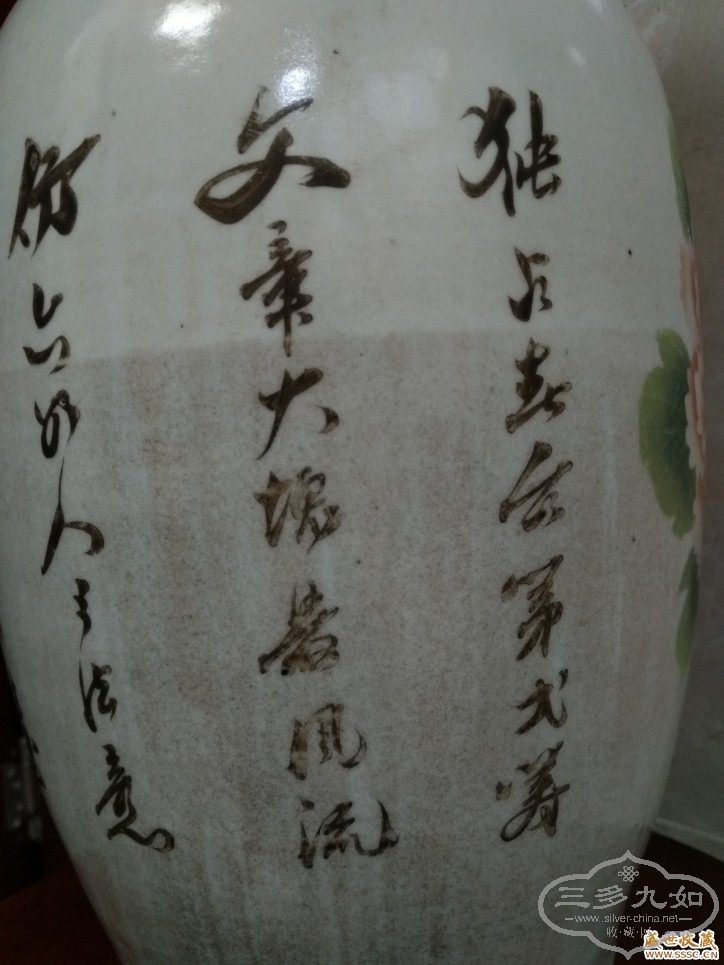 独占春第弌籌
文章大塊風流
仿六如人法意
三多九如
www.silver-china.net
收·藏
盛世收藏
WWW.SSSC.CN